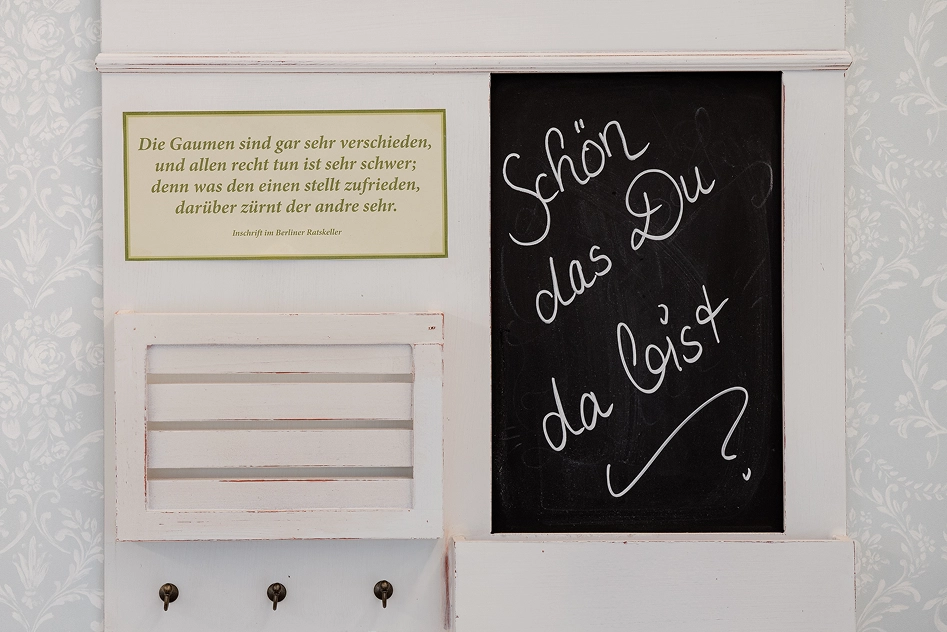 Die Gaumen sind gar sehr verschieden,
und allen recht tun ist sehr schwer;
denn was den einen stellt zufrieden,
darüber zürnt der andre sehr.
Inschrift im Berliner Ratskeller
Schön
das Du
da bist